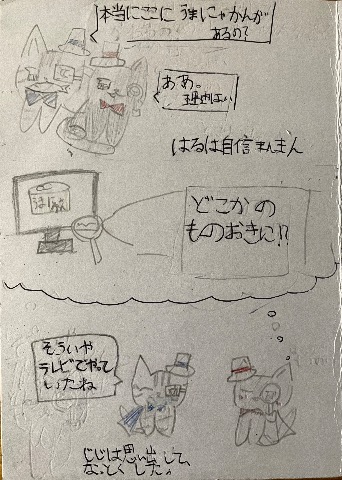 本当にここに うまにゃかんが
あるの?
ああ。
はるは自信まんまん
うまにゃん
どこかの
ものおきに!?
そういや
テレビでやって
いたね
じじは思い出して、
なっとくした。